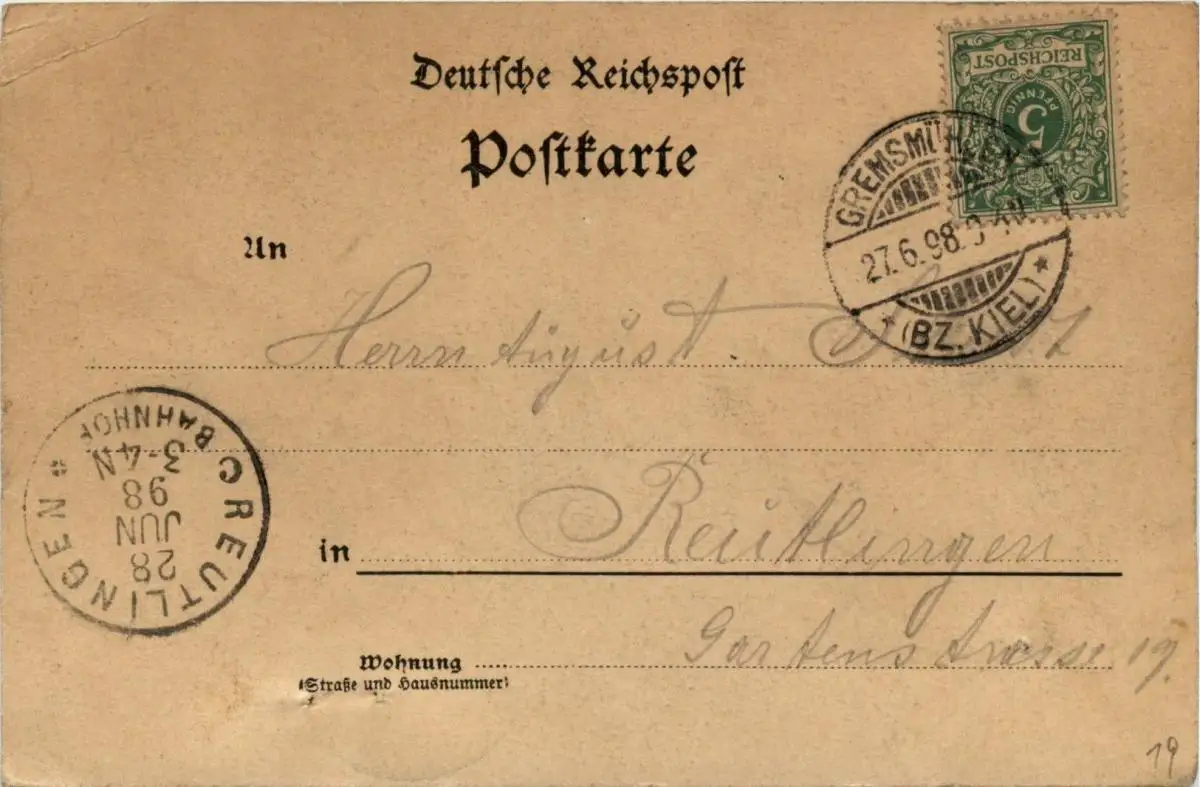 Deutsche Reichspost
Postkarte
REICHSPOST
5
PFENNIG
GREMSMÜHLEN
27.6.98.
* (BZ. KIEL) *
An
Herrn August
REUTLINGEN
BAHNHOF
3-4N
98
JUN
28
in Reutlingen
Gartenstrasse 19.
Wohnung
(Straße und Hausnummer)
19